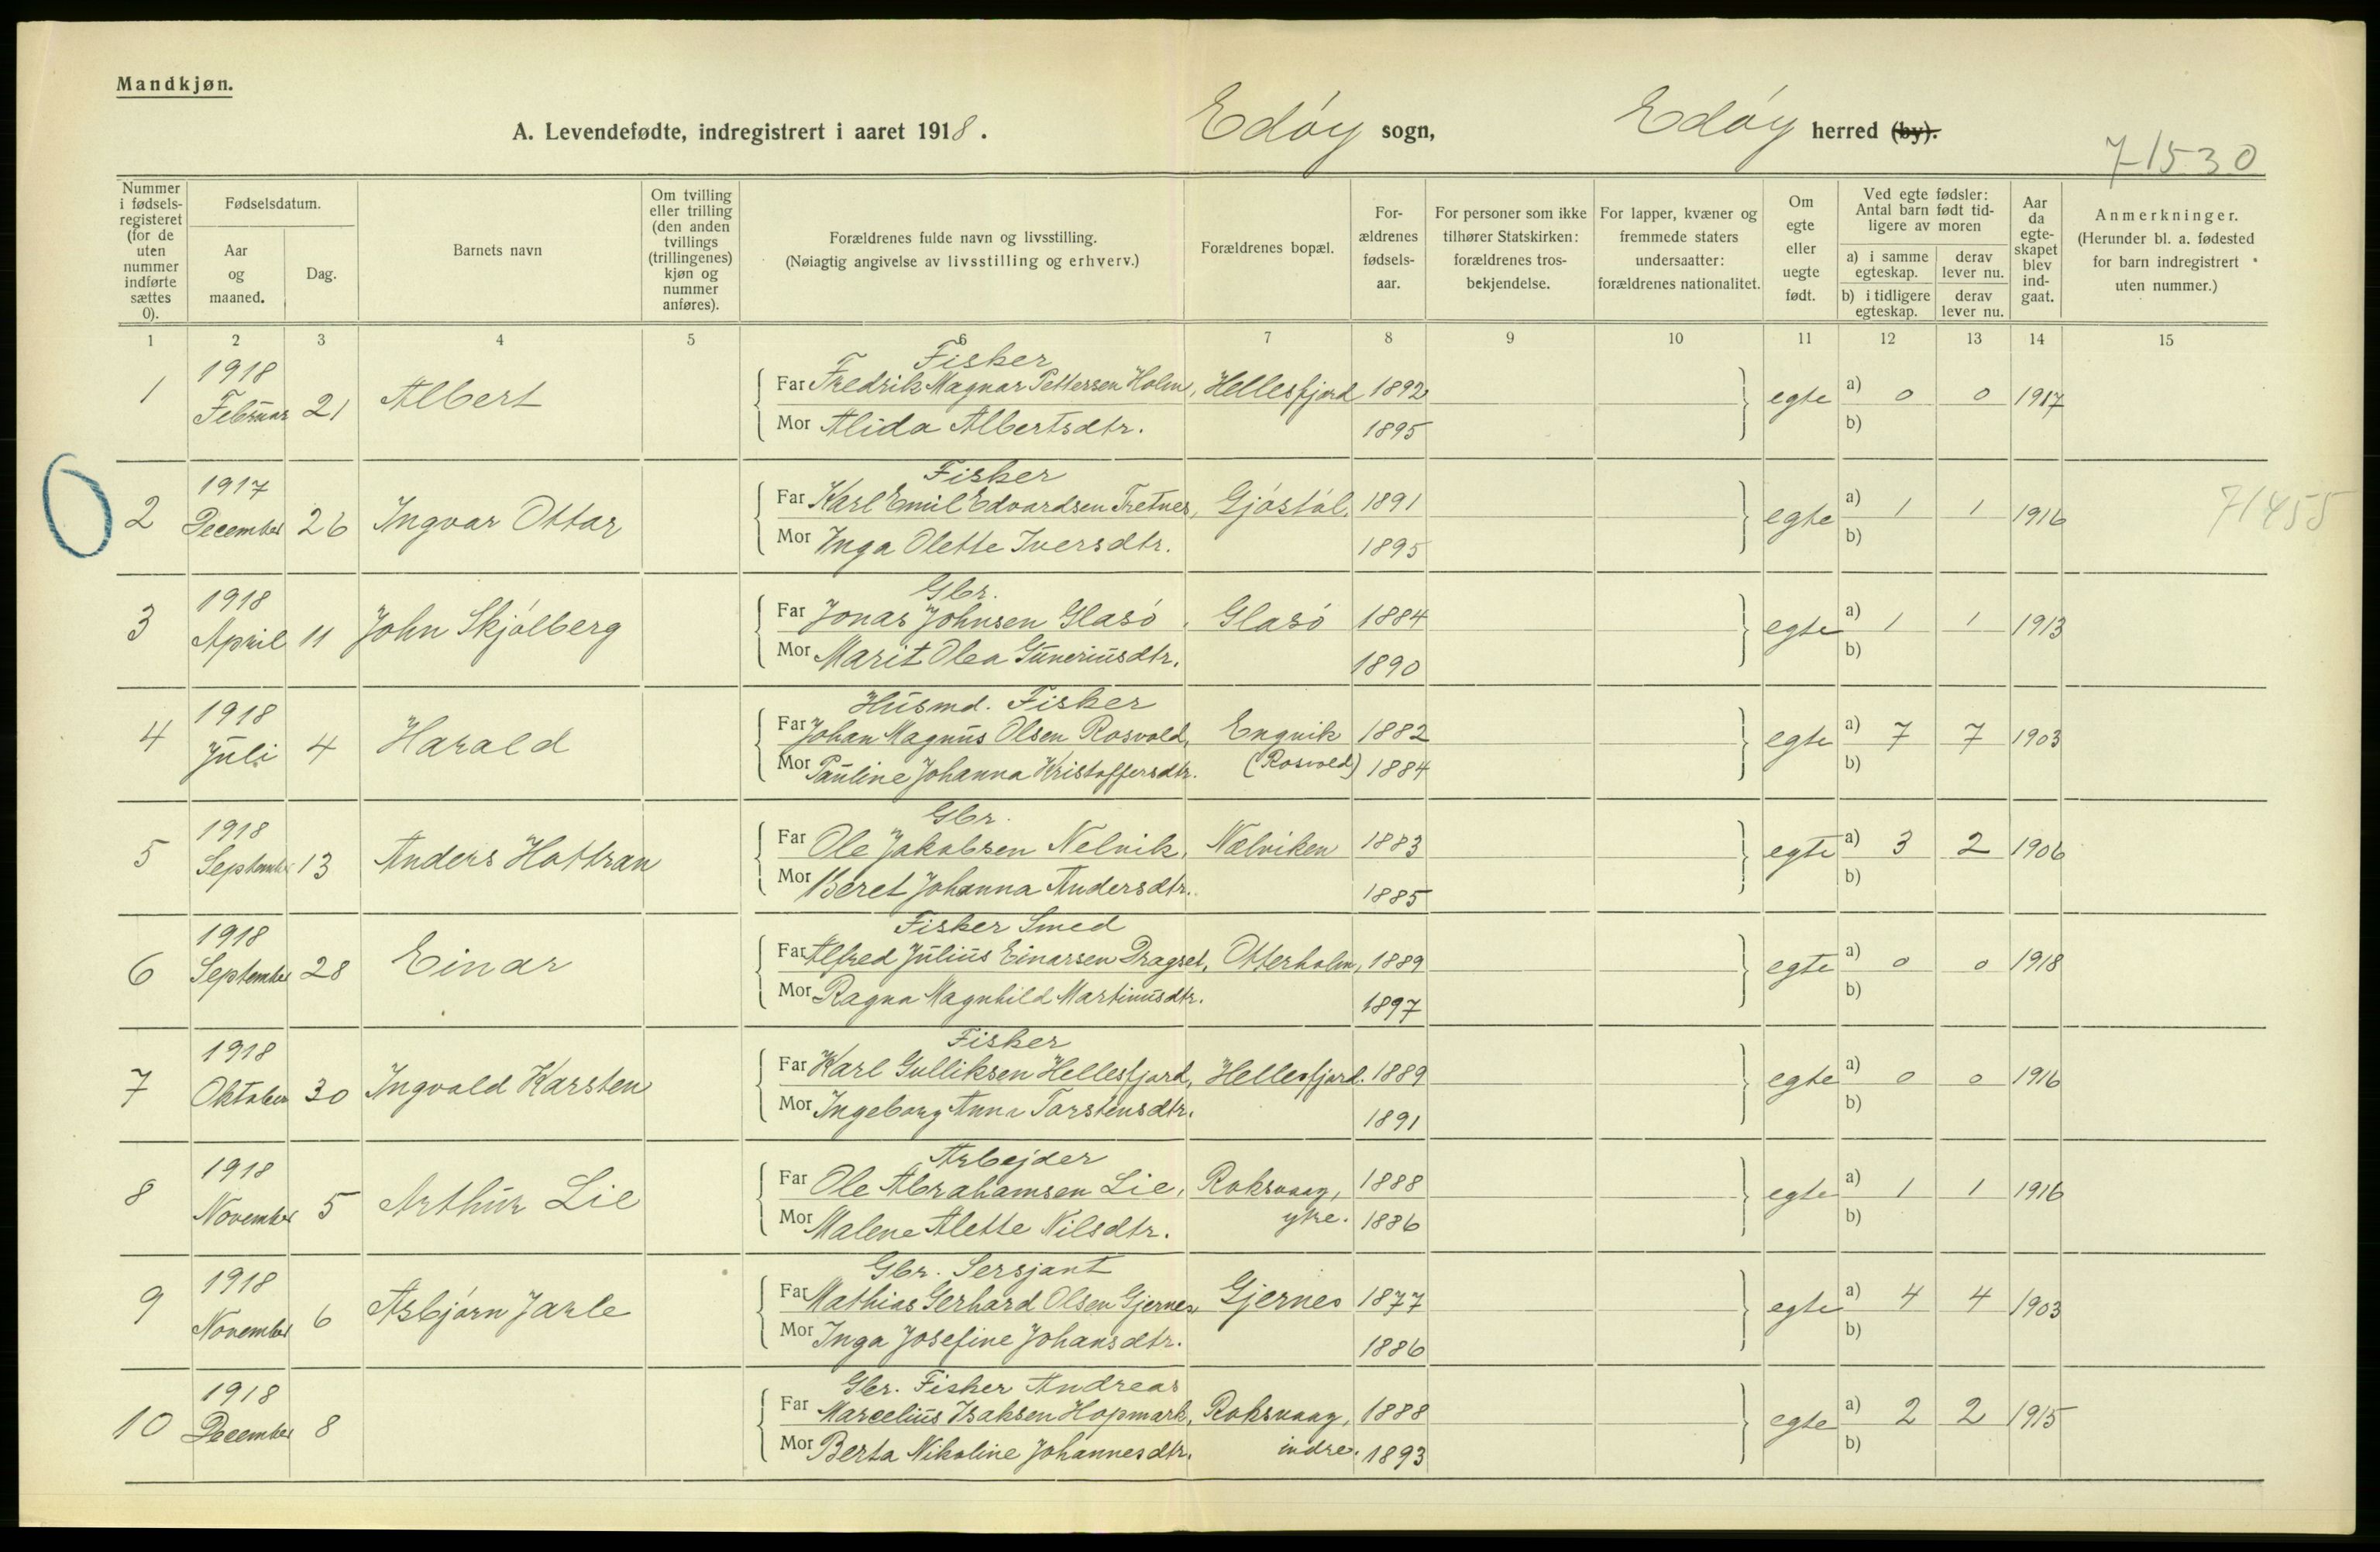 Mandkjøn.
A. Levendefødte, indregistrert i aaret 1918. Edøy sogn, Edøy herred (by).
71530
Nummer i fødsels-registeret (for de uten nummer indførte sættes 0).
Fødselsdatum.
Aar og maaned.
Dag.
Barnets navn
Om tvilling eller trilling (den anden tvillings (trillingenes) kjøn og nummer anføres).
Forældrenes fulde navn og livsstilling.
(Nøiagtig angivelse av livsstilling og erhverv.)
Forældrenes bopæl.
For-ældrenes fødsels-aar.
For personer som ikke tilhører Statskirken: forældrenes tros-bekjendelse.
For lapper, kvæner og fremmede staters undersaatter: forældrenes nationalitet.
Om egte eller uegte født.
Ved egte fødsler: Antal barn født tid-ligere av moren
a) i samme egteskap. derav lever nu.
b) i tidligere egteskap. derav lever nu.
Aar da egte-skapet blev ind-gaat.
Anmerkninger.
(Herunder bl. a. fødested for barn indregistrert uten nummer.)
1 2 3 4 5 6 7 8 9 10 11 12 13 14 15
1918 Fisker
1 Februar 21 Albert Far Fredrik Magnar Pettersen Holm, Hellesfjord 1892 egte a) 0 0 1917
Mor Alida Albertsdtr. 1895 b)
1917 Fisker
2 December 26 Ingvar Ottar Far Karl Emil Edvardsen Tretnes, Gjøstøl, 1891 egte a) 1 1 1916 71455
Mor Inga Olette Iversdtr. 1895 b)
1918 Gbr.
3 April 11 John Skjølberg Far Jonas Johnsen Glasø, Glasø 1884 egte a) 1 1 1913
Mor Marit Olea Guneriusdtr. 1890 b)
1918 Husmd. Fisker
4 Juli 4 Harald Far Johan Magnus Olsen Rosvold, Engvik 1882 egte a) 7 7 1903
Mor Pauline Johanna Kristoffersdtr. (Rosvold) 1884 b)
1918 Gbr.
5 September 13 Anders Hottran Far Ole Jakobsen Nelvik, Nælviken 1883 egte a) 3 2 1906
Mor Beret Johanna Andersdtr. 1885 b)
1918 Fisker Smed
6 September 28 Einar Far Alfred Julius Einarsen Dragset, Otterholm, 1889 egte a) 0 0 1918
Mor Ragna Magnhild Martinusdtr. 1897 b)
1918 Fisker
7 Oktober 30 Ingvald Karsten Far Karl Gulliksen Hellesfjord, Hellesfjord. 1889 egte a) 0 0 1916
Mor Ingeborg Anna Torstensdtr. 1891 b)
1918 Arbejder
8 November 5 Arthur Lie Far Ole Abrahamsen Lie, Roksvaag, 1888 egte a) 1 1 1916
Mor Malene Alette Nilsdtr. ytre. 1886 b)
1918 Gbr. Sersjant
9 November 6 Asbjørn Jarle Far Mathias Gerhard Olsen Gjernes, Gjernes 1877 egte a) 4 4 1903
Mor Inga Josefine Johansdtr. 1886 b)
1918 Gbr. Fisker Andreas
10 December 8 Far Marcelius Isaksen Hopmark, Roksvaag, 1888 egte a) 2 2 1915
Mor Berta Nikoline Johannesdtr. indre. 1893 b)